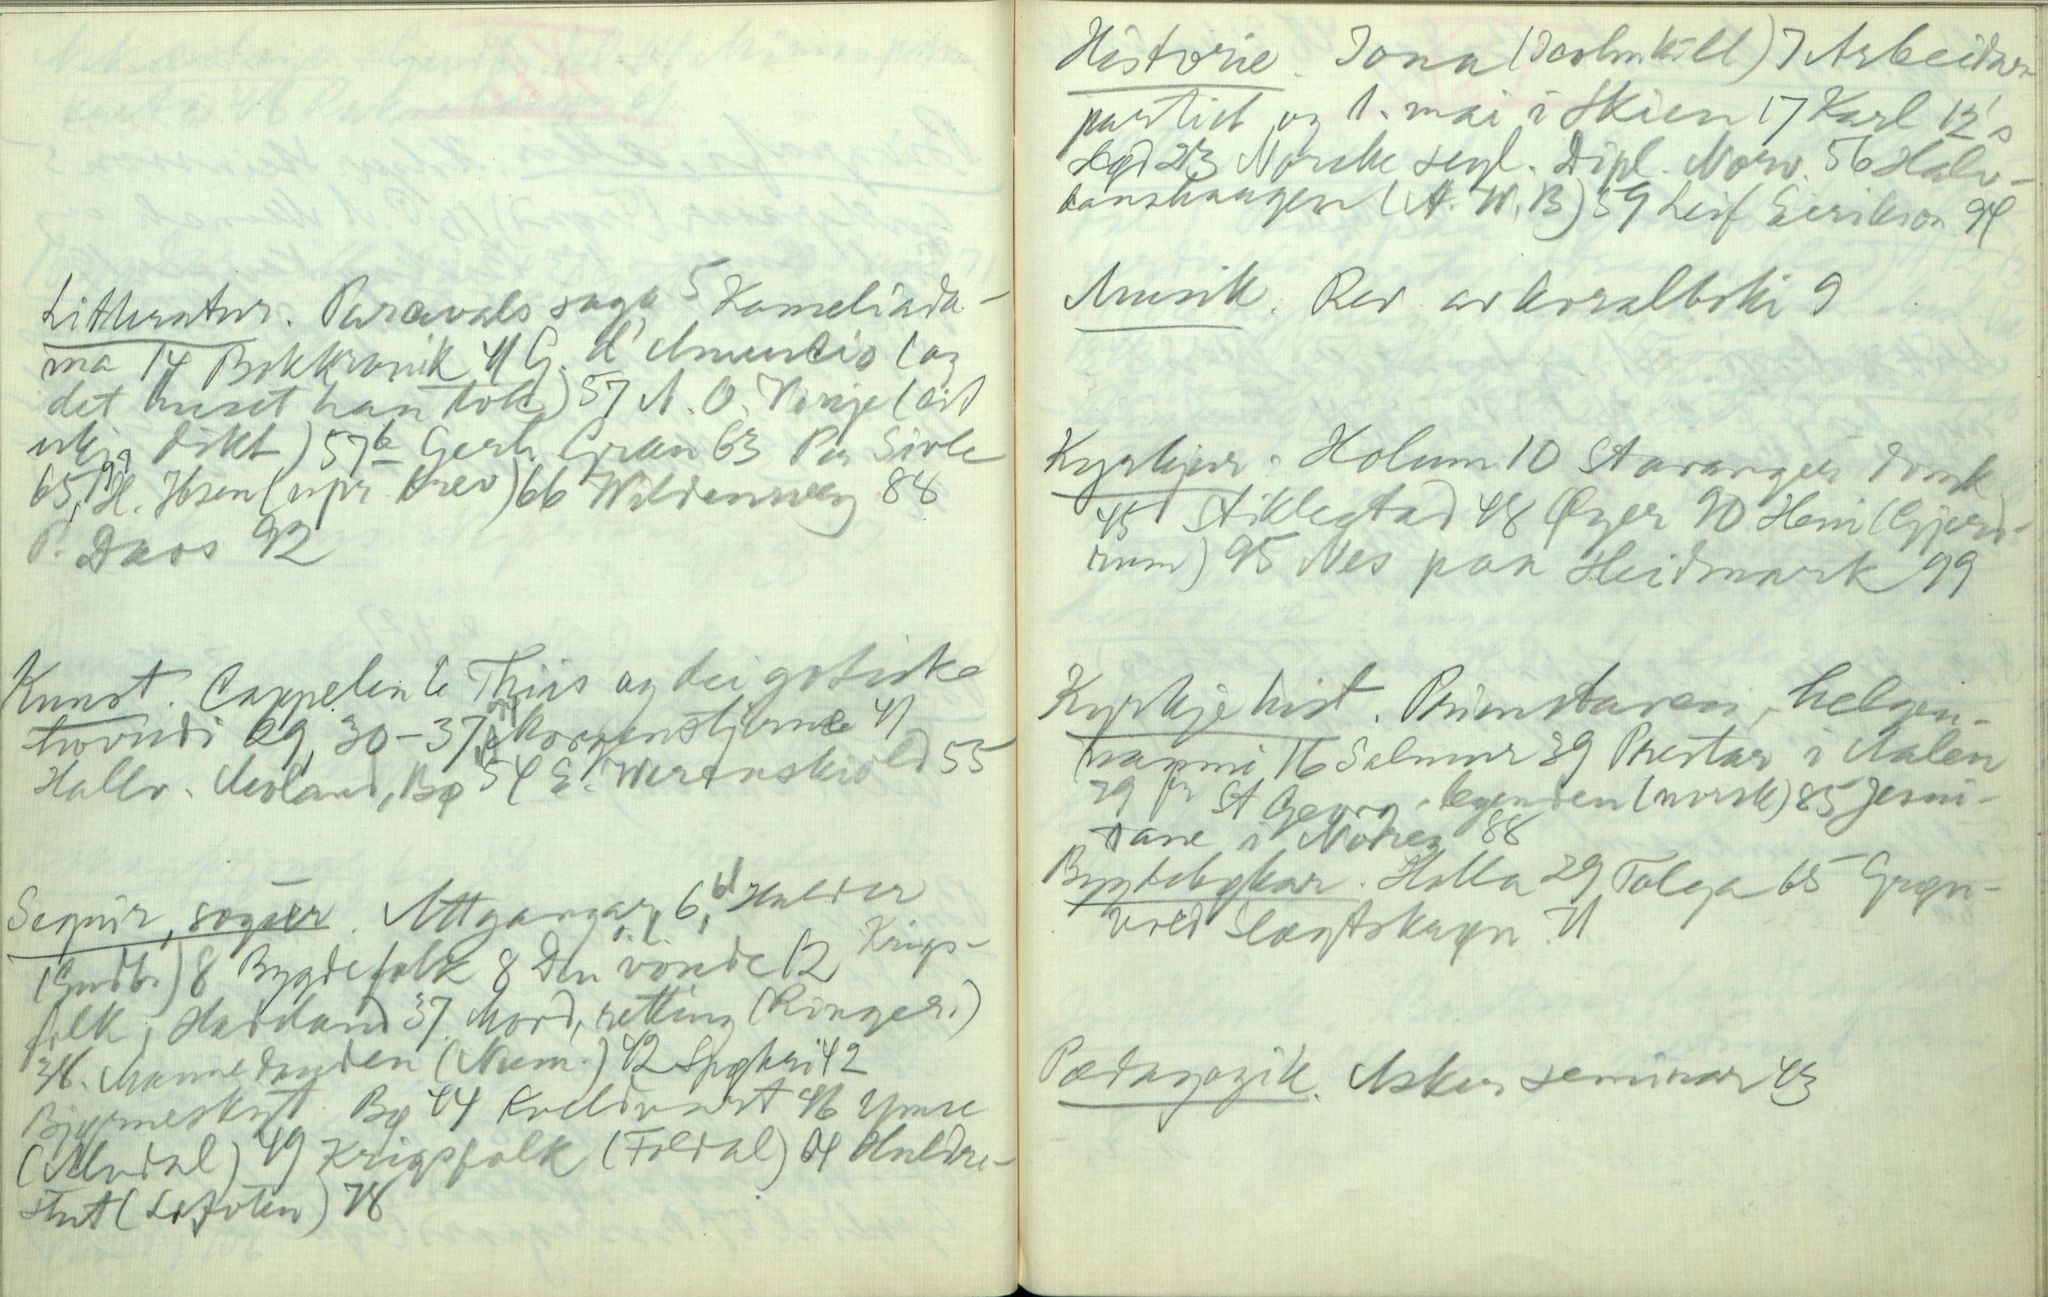 Litteratur. Parcevals saga 5 Kameliada-
ma 14 Bokkronik 41 G. d'Anuncio (og
det huset han tok) 57 A. O. Vinje (eit
ukj. dikt) 57b Gerh. Gran 63 Per Sivle
65, H. Ibsen (upr. brev) 66 Wildenwey 84
P. Dass 92
Kunst. Cappelen 6 Thiis og dei gotiske
hovudi 29, 30-37, Morgenstjerne 41
Hallv. Midland, Bø 54 E. Werenskiold 55
Segnir, sogær. Attgangar 6, Hulder
(Gudb.) 8 Bygdefolk 8 Den vonde 12 Krigs-
folk, Hadeland 37 Mord, retting (Ringer.)
38. Mannedauden (Num.) 42 Spøkri 42
Bjørneskyt. Bø 44 Kveldvart 46 Ymse
(Alvdal) 49 Krigsfolk (Foldal) 64 Huldre-
(Lofoten) 78
Historie. Iona (Icolmkill) 7 Arbeidar
partiet og 1. mai i Skien 17 Karl 12's
23 Norske segl. Dipl. Norv. 56 Halv-
danshaugen (A. W. B) 59 Leif Eirikson 94
Musik. Rev. av koralboki 9
Kyrkjur. Holum 10 Stavanger domk.
45 Stiklestad 48 Øyer 90 Heni (Gjerd-
rum) 95 Nes paa Heidmark 99
Kyrkjehist. Primstaven, helgen-
namni 16 Salmur 39 Prestar i Aalen
79 St Georg-legenden (norsk) 85 Jesui-
tane i Noreg 88
Bygdebøkar. Holla 29 Tolga 65 Grøn-
vold Slægtskrøn. 71
Pædagogik. Asker seminar 43